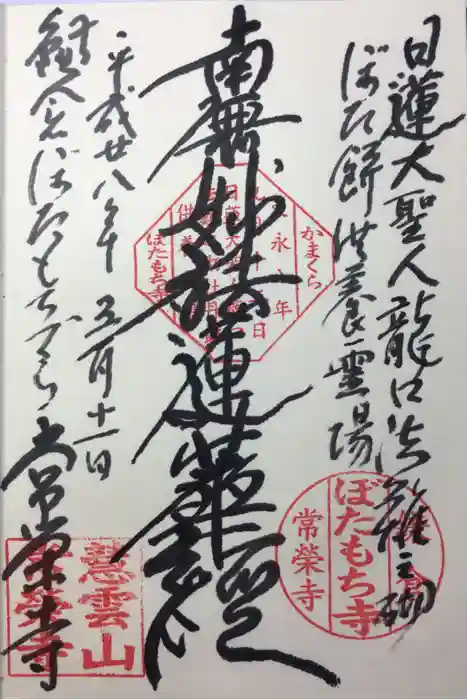 日蓮大聖人龍口法難之砌
ぼた餅供養霊場
南無妙法蓮華経
平成廿八年 五月十一日
鎌倉 ぼたもちでら 常栄寺
かまくら
ぼたもち寺
ぼたもち寺
常榮寺
慈雲山
常榮寺